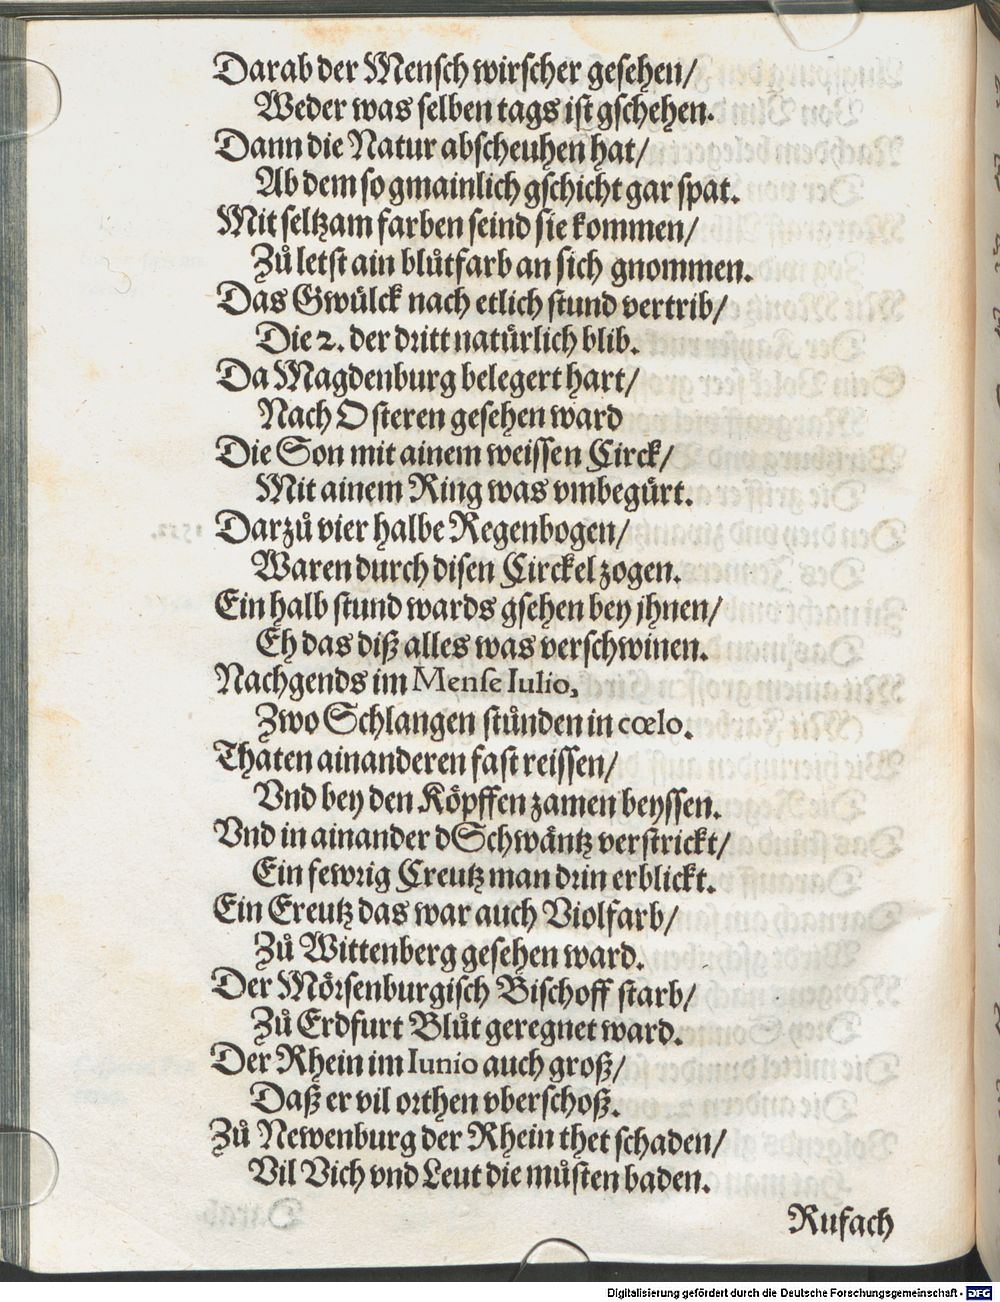 Darab der Mensch wirscher gesehen/
Weder was selben tags ist gschehen.
Dann die Natur abscheuhen hat/
Ab dem so gmainlich gschicht gar spat.
Mit seltzam farben seind sie kommen/
Zů letst ain blůtfarb an sich gnommen.
Das Gwülck nach etlich stund vertrib/
Die 2. der dritt natürlich blib.
Da Magdenburg belegert hart/
Nach Osteren gesehen ward
Die Son mit ainem weissen Circk/
Mit ainem Ring was vmbegürt.
Darzů vier halbe Regenbogen/
Waren durch disen Circkel zogen.
Ein halb stund wards gsehen bey jhnen/
Eh das diß alles was verschwinen.
Nachgends im Mense Iulio,
Zwo Schlangen stůnden in cœlo.
Thaten ainanderen fast reissen/
Vnd bey den Köpffen zamen beyssen.
Vnd in ainander dSchwäntz verstrickt/
Ein fewrig Creutz man drin erblickt.
Ein Creutz das war auch Violfarb/
Zů Wittenberg gesehen ward.
Der Mörsenburgisch Bischoff starb/
Zů Erdfurt Blůt geregnet ward.
Der Rhein im Iunio auch groß/
Daß er vil orthen vberschoß.
Zů Newenburg der Rhein thet schaden/
Vil Vich vnd Leut die můsten baden.
Rufach
Digitalisierung gefördert durch die Deutsche Forschungsgemeinschaft - DFG